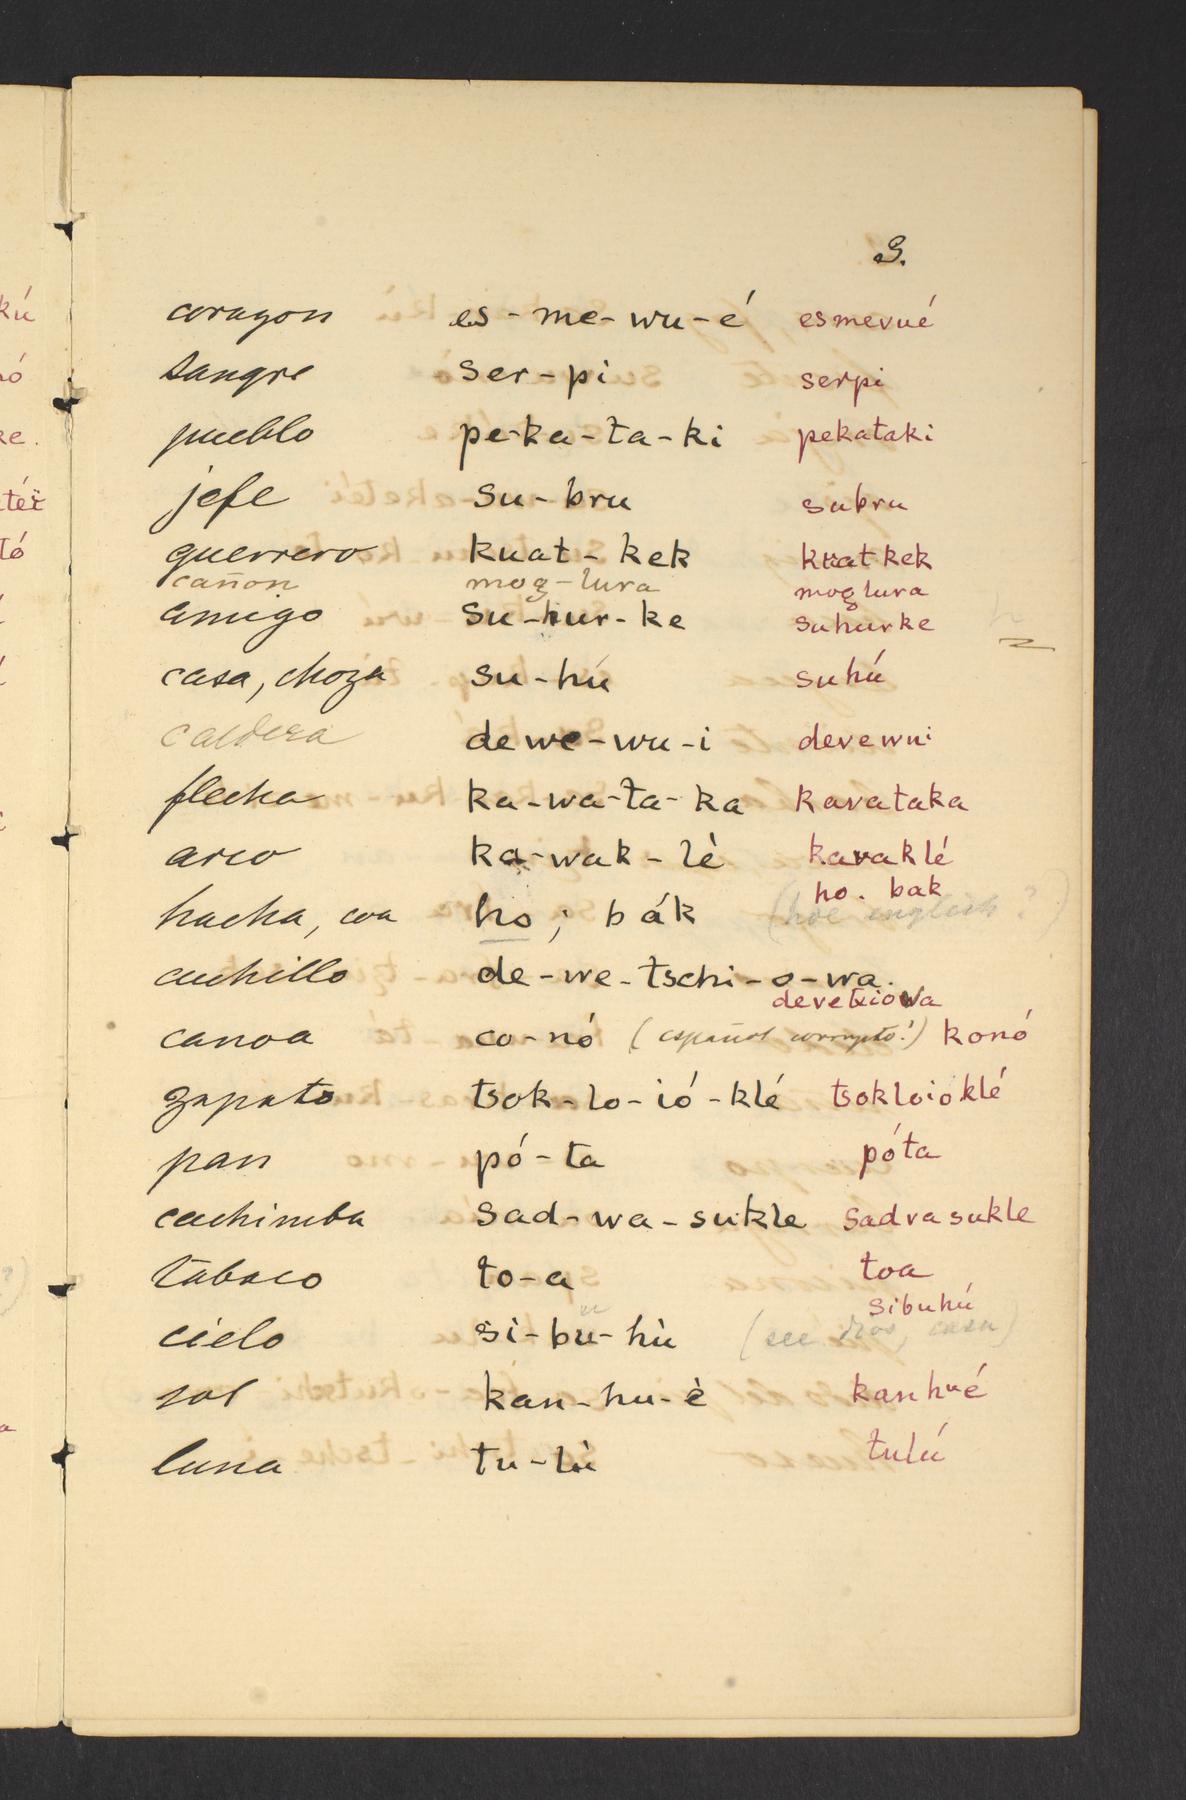 S.
coraçon es-me-wu-é esmevué
sangre ser-pi serpi
pueblo pe-ka-ta-ki pekataki
jefe su-bru subru
guerrero kuat-kek kuatkek
cañon mog-lura moglura
amigo su-hur-ke suhurke
casa, choza su-hú suhú
caldera dewe-wu-i devewui
flecha ka-wa-ta-ka kavataka
arco ka-wak-lè kavaklé
ho. bak
hacha, coa ho; bák (hoe english?)
cuchillo de-we-tschi-o-wa.
devetxiova
canoa co-nó (español corrupto!) konó
zapato tsok-lo-ió-klé tsokloioklé
pan pó-ta póta
cachimba sad-wa-sukle sadvasukle
tabaco to-a toa
sibuhú
cielo si-bu-hù (see dios, casa)
sol kan-hu-è kanhué
luna tu-lù tulú